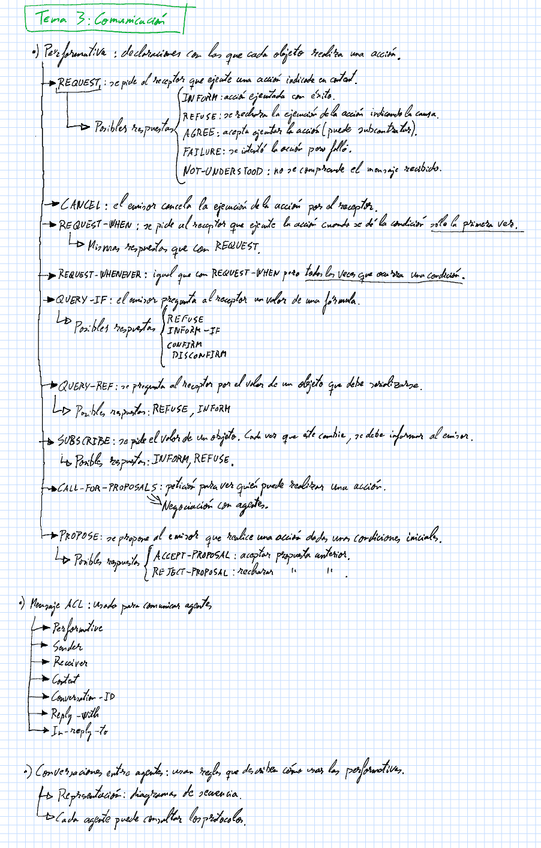 Tema 3: Comunicación
•) Performativa: declaraciones con las que cada objeto realiza una acción.
REQUEST: se pide al receptor que ejecute una acción indicada en content.
Posibles respuestas
INFORM: acción ejecutada con éxito.
REFUSE: se rechaza la ejecución de la acción indicando la causa.
AGREE: acepta ejecutar la acción (puede subcontratar).
FAILURE: se intentó la acción pero falló.
NOT-UNDERSTOOD: no se comprende el mensaje recibido.
CANCEL: el emisor cancela la ejecución de la acción por el receptor.
REQUEST-WHEN: se pide al receptor que ejecute la acción cuando se dé la condición sólo la primera vez.
Mismas respuestas que con REQUEST.
REQUEST-WHENEVER: igual que con REQUEST-WHEN pero todas las veces que ocurra una condición.
QUERY-IF: el emisor pregunta al receptor un valor de una fórmula.
Posibles respuestas
REFUSE
INFORM-IF
CONFIRM
DISCONFIRM
QUERY-REF: se pregunta al receptor por el valor de un objeto que debe serializarse.
Posibles respuestas: REFUSE, INFORM
SUBSCRIBE: se pide el valor de un objeto. Cada vez que éste cambie, se debe informar al emisor.
Posibles respuestas: INFORM, REFUSE.
CALL-FOR-PROPOSALS: petición para ver quién puede realizar una acción.
Negociación con agentes.
PROPOSE: se propone al emisor que realice una acción dadas unas condiciones iniciales.
Posibles respuestas
ACCEPT-PROPOSAL: aceptar propuesta anterior.
REJECT-PROPOSAL: rechazar " ".
•) Mensaje ACL: usado para comunicar agentes
Performative
Sender
Receiver
Content
Conversation-ID
Reply-with
In-reply-to
•) Conversaciones entre agentes: usan reglas que describen cómo usar las performativas.
Representación: diagramas de secuencia.
Cada agente puede consultar los protocolos.